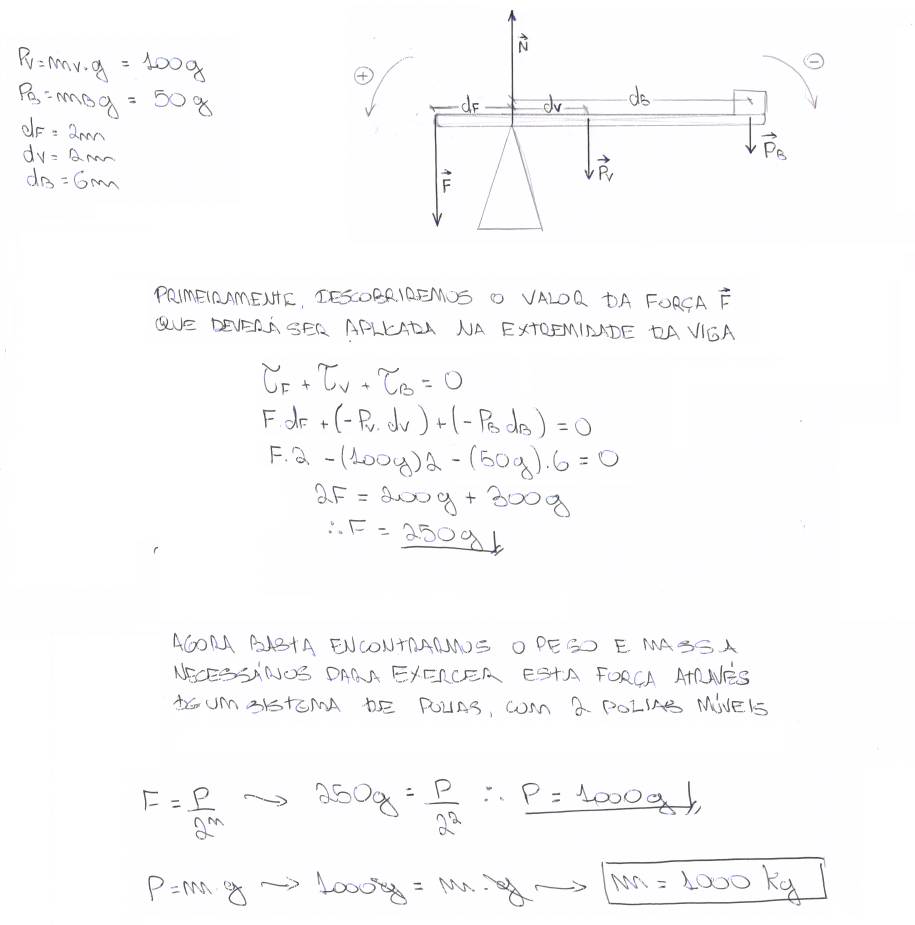 Pv = mv.g = 100g
PB = mBg = 50g
dF = 2m
dv = 2m
dB = 6m
N⃗
+
−
dF
dv
dB
F⃗
P⃗v
P⃗B
PRIMEIRAMENTE, DESCOBRIREMOS O VALOR DA FORÇA F⃗
QUE DEVERÁ SER APLICADA NA EXTREMIDADE DA VIGA
τF + τv + τB = 0
F.dF + (-Pv.dv) + (-PB dB) = 0
F.2 - (100g)2 - (50g).6 = 0
2F = 200g + 300g
∴ F = 250g
AGORA BASTA ENCONTRARMOS O PESO E MASSA
NECESSÁRIOS PARA EXERCER ESTA FORÇA ATRAVÉS
DE UM SISTEMA DE POLIAS, COM 2 POLIAS MÓVEIS
F = P/2ⁿ → 250g = P/2² ∴ P = 1000g
P = m.g → 1000g = m.g → m = 1000 kg